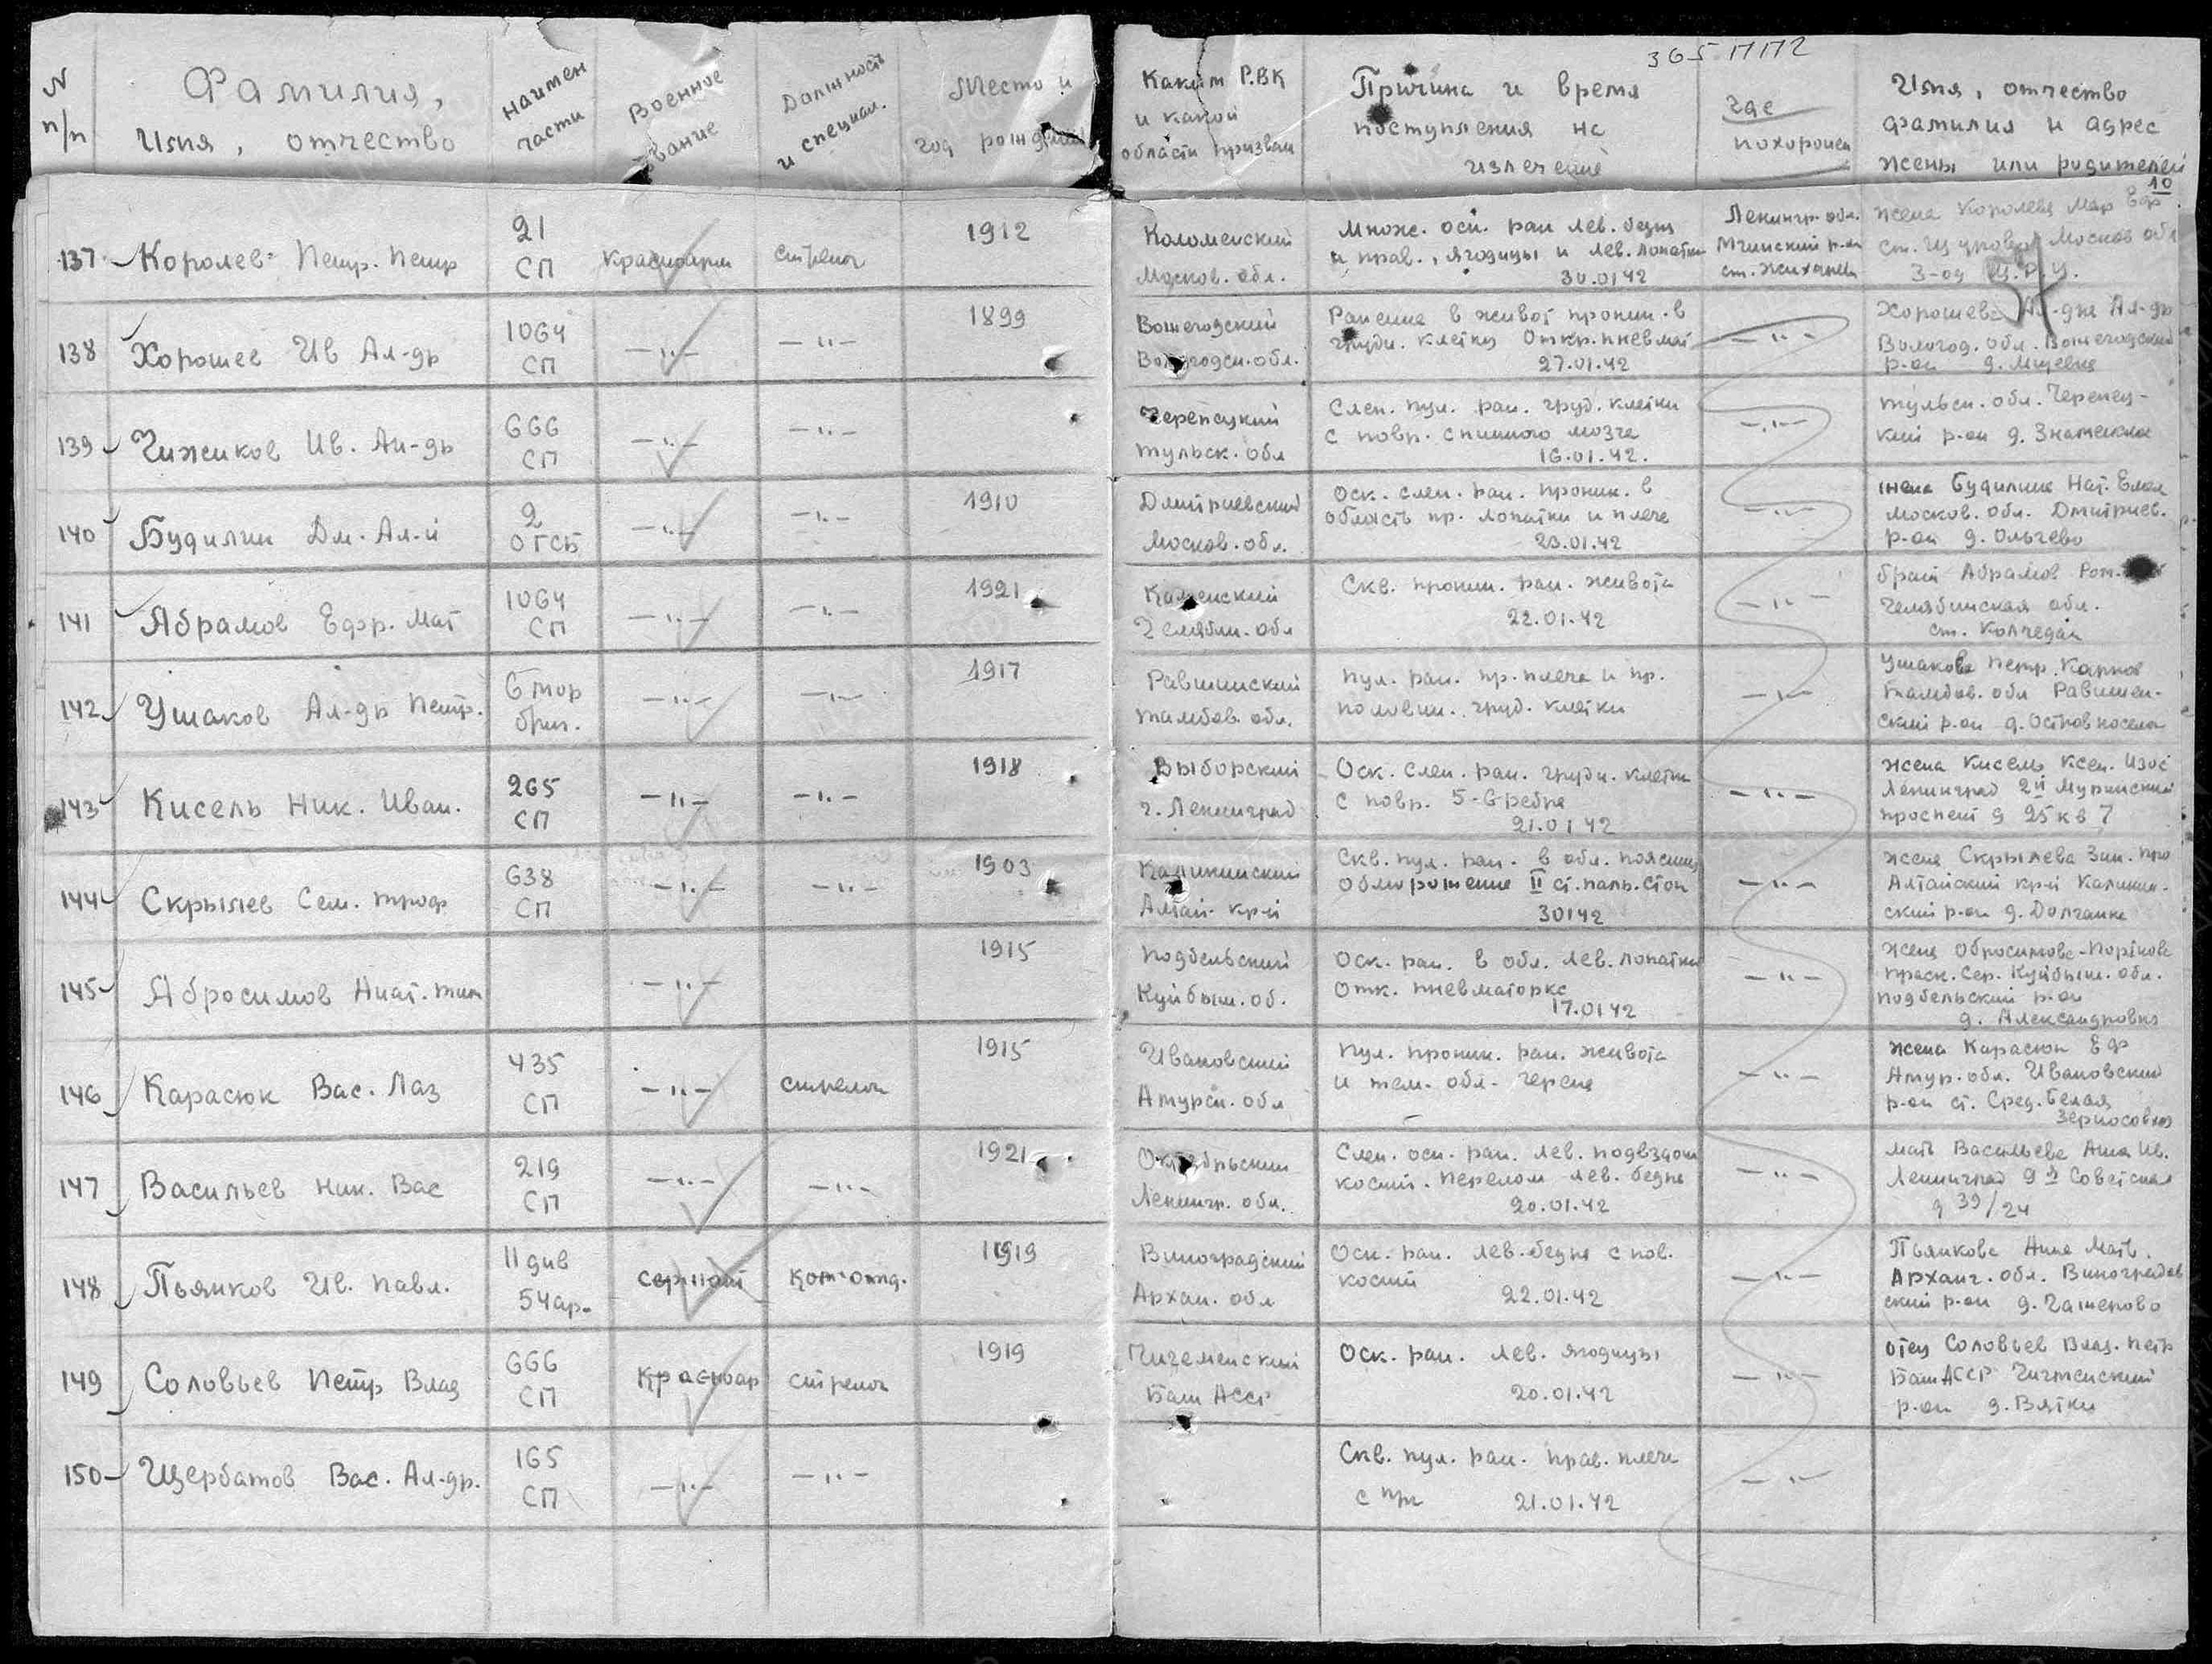 365 ППГ
N п/п
Фамилия,
Имя, отчество
Наимен
части
Военное
звание
Должность
и специал.
Место и
год рождения
Каким Р.ВК
и какой
области призван
Причина и время
поступления на
излечение
где
похоронен
Имя, отчество
фамилия и адрес
жены или родителей
10
137 Королев Петр. Петр
21
СП
Красноарм
стрелок
1912
Коломенский
Москов. обл.
Множ. оск. ран лев. бедра
и прав., ягодицы и лев. лопатки
30.0142
Ленингр. обл.
Мгинский р-он
ст. Жихарево
жена Королева Мар Ефр
138 Хорошев Ив Ал-др
1064
СП
—"—
—"—
1899
Вожегодский
Вологодск. обл.
Ранение в живот проник. в
грудн. клетку Откр. пневмат
27.01.42
—"—
Хорошева Ал-дра Ал-др
Вологод. обл. Вожегодский
р-он
139 Чижиков Ив. Ан-др
666
СП
—"—
—"—
Черепецкий
Тульск. обл
Слеп. пул. ран. груд. клетки
с повр. спинного мозга
16.01.42.
—"—
Тульск. обл. Черепец-
кий р-он д. Знаменка
140 Будилин Дм. Ал-й
2
ОГСБ
—"—
—"—
1910
Дмитриевский
Москов. обл.
Оск. слеп. ран. проник. в
область пр. лопатки и плеча
23.01.42
—"—
жена Будилина Нат. Емел
Москов. обл. Дмитриев.
р-он д. Ольгево
141 Абрамов Ефр. Мат
1064
СП
—"—
—"—
1921
Каменский
Челябин. обл
Скв. проник. ран. живота
22.01.42
—"—
брат Абрамов Ром.
Челябинская обл.
ст. Колчедан
142 Ушаков Ал-др Петр.
6 мор
бриг.
—"—
—"—
1917
Равшинский
Тамбов. обл.
Пул. ран. пр. плеча и пр.
половин. груд. клетки
—"—
Ушаков Петр. Карпов
Тамбов. обл Равшен-
ский р-он
143 Кисель Ник. Иван.
265
СП
—"—
—"—
1918
Выборский
г. Ленинград
Оск. слеп. ран. грудн. клетки
с повр. 5-6 ребра
21.0142
—"—
жена Кисель Ксен.
Ленинград 2й Муринский
проспект д 25 кв 7
144 Скрылев Сем. Троф
638
СП
—"—
—"—
1903
Калининский
Алтай. кр-й
Скв. пул. ран. в обл. поясниц
обморожение II ст. паль. стоп
30142
—"—
жена Скрылева Зин. Про
Алтайский кр-й Калинин-
ский р-он д. Долганка
145 Абросимов Анат. Тим
—"—
1915
Подбельский
Куйбыш. об.
Оск. ран. в обл. лев. лопатки
Отк. пневматоркс
17.0142
—"—
жена Обросимова-Портнова
Праск. Сер. Куйбыш. обл.
Подбельский р-он
д. Александровка
146 Карасюк Вас. Лаз
435
СП
—"—
стрелок
1915
Ивановский
Амурск. обл
Пул. проник. ран. живота
и тем. обл. черепа
—"—
жена Карасюк Еф
Амур. обл. Ивановский
р-он ст. Сред. Белая
Зерносовхоз
147 Васильев Ник. Вас
219
СП
—"—
—"—
1921
Октябрьский
Ленингр. обл.
Слеп. оск. ран. лев. подвздош
кости. Перелом лев. бедра
20.01.42
—"—
мать Васильева Анна Ив.
Ленинград 9я Советская
д 39/24
148 Пьянков Ив. Павл.
11 див
54 ар.
Сержант
Ком. отд.
1919
Виноградский
Архан. обл
Оск. ран. лев. бедра с пов.
костей
22.01.42
—"—
Пьянкова Анна Матв.
Арханг. обл. Виноградов
ский р-он
149 Соловьев Петр Влад
666
СП
Красноар
стрелок
1919
Чигеменский
Баш АССР
Оск. ран. лев. ягодицы
20.01.42
—"—
отец Соловьев Влад. Петр
Баш АССР
р-он д. Вятки
150 Щербатов Вас. Ал-др.
165
СП
—"—
—"—
Скв. пул. ран. прав. плеча
21.01.42
—"—